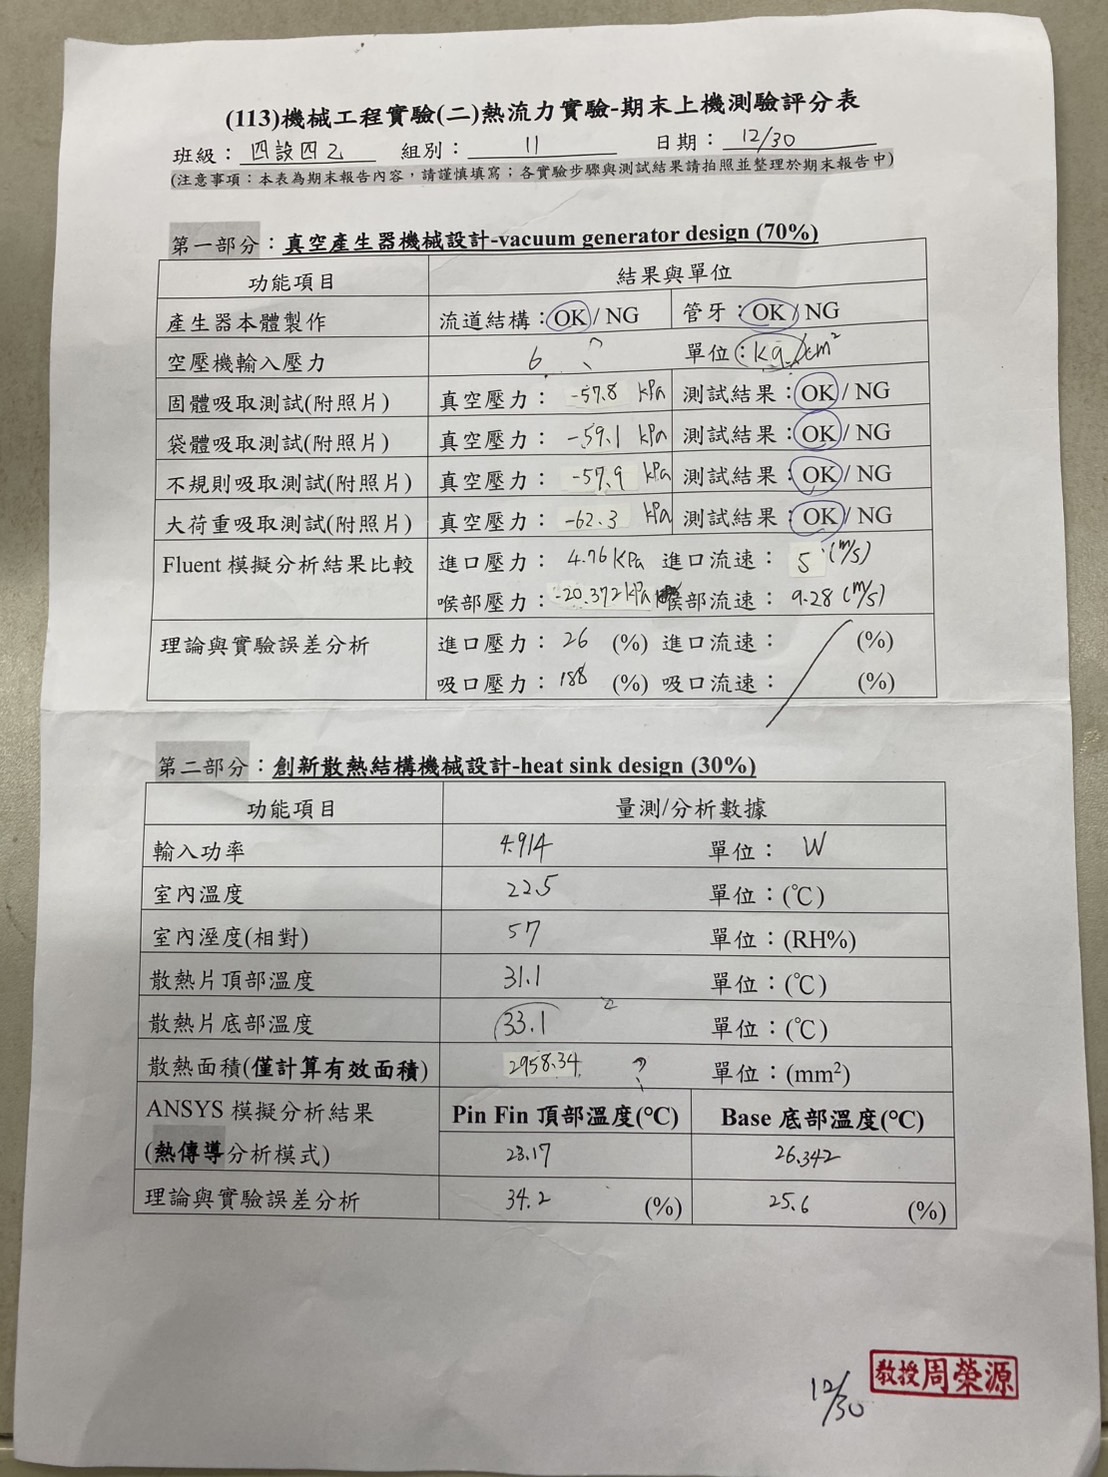 (113)機械工程實驗(二)熱流力實驗-期末上機測驗評分表
班級：四設四乙 組別：11 日期：12/30
(注意事項：本表為期末報告內容，請謹慎填寫；各實驗步驟與測試結果請拍照並整理於期末報告中)
第一部分：真空產生器機械設計-vacuum generator design (70%)
功能項目 結果與單位
產生器本體製作 流道結構：OK / NG 管牙：OK / NG
空壓機輸入壓力 6 單位：kg/cm²
固體吸取測試(附照片) 真空壓力： -57.8 kPa 測試結果：OK / NG
袋體吸取測試(附照片) 真空壓力： -59.1 kPa 測試結果：OK / NG
不規則吸取測試(附照片) 真空壓力： -57.9 kPa 測試結果：OK / NG
大荷重吸取測試(附照片) 真空壓力： -62.3 kPa 測試結果：OK / NG
Fluent 模擬分析結果比較 進口壓力： 4.76 KPa 進口流速： 5 (m/s)
喉部壓力：-20.372 kPa 喉部流速： 9.28 (m/s)
理論與實驗誤差分析 進口壓力： 26 (%) 進口流速： (%)
吸口壓力： 188 (%) 吸口流速： (%)
第二部分：創新散熱結構機械設計-heat sink design (30%)
功能項目 量測/分析數據
輸入功率 4.914 單位： W
室內溫度 22.5 單位：(℃)
室內溼度(相對) 57 單位：(RH%)
散熱片頂部溫度 31.1 單位：(℃)
散熱片底部溫度 33.1 單位：(℃)
散熱面積(僅計算有效面積) 2958.34 單位：(mm²)
ANSYS 模擬分析結果 Pin Fin 頂部溫度(℃) Base 底部溫度(℃)
(熱傳導分析模式) 23.17 26.342
理論與實驗誤差分析 34.2 (%) 25.6 (%)
教授周榮源
12/30